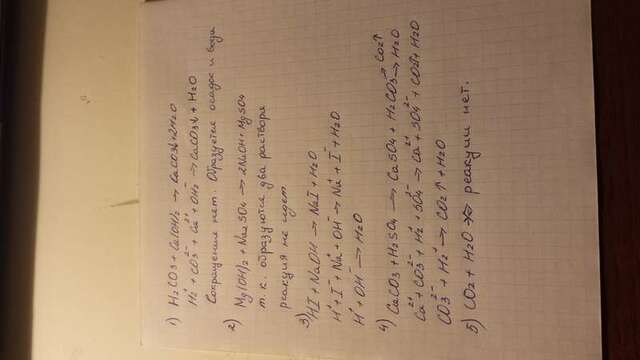 1) H2CO3 + Ca(OH)2 → CaCO3↓ + 2H2O
H2⁺ + CO3²⁻ + Ca²⁺ + OH2⁻ → CaCO3↓ + H2O
Сокращения нет. Образуется осадок и вода
2) Mg(OH)2 + Na2SO4 → 2NaOH + MgSO4
т.к. образуются два раствора
реакция не идет.
3) HI + NaOH → NaI + H2O
H⁺ + I⁻ + Na⁺ + OH⁻ → Na⁺ + I⁻ + H2O
H⁺ + OH⁻ → H2O
4) CaCO3 + H2SO4 → CaSO4 + H2CO3 → CO2↑ → H2O
Ca²⁺ + CO3²⁻ + H2⁺ + SO4²⁻ → Ca²⁺ + SO4²⁻ + CO2↑ + H2O
CO3²⁻ + H2⁺ → CO2↑ + H2O
5) CO2 + H2O ↛ реакции нет.